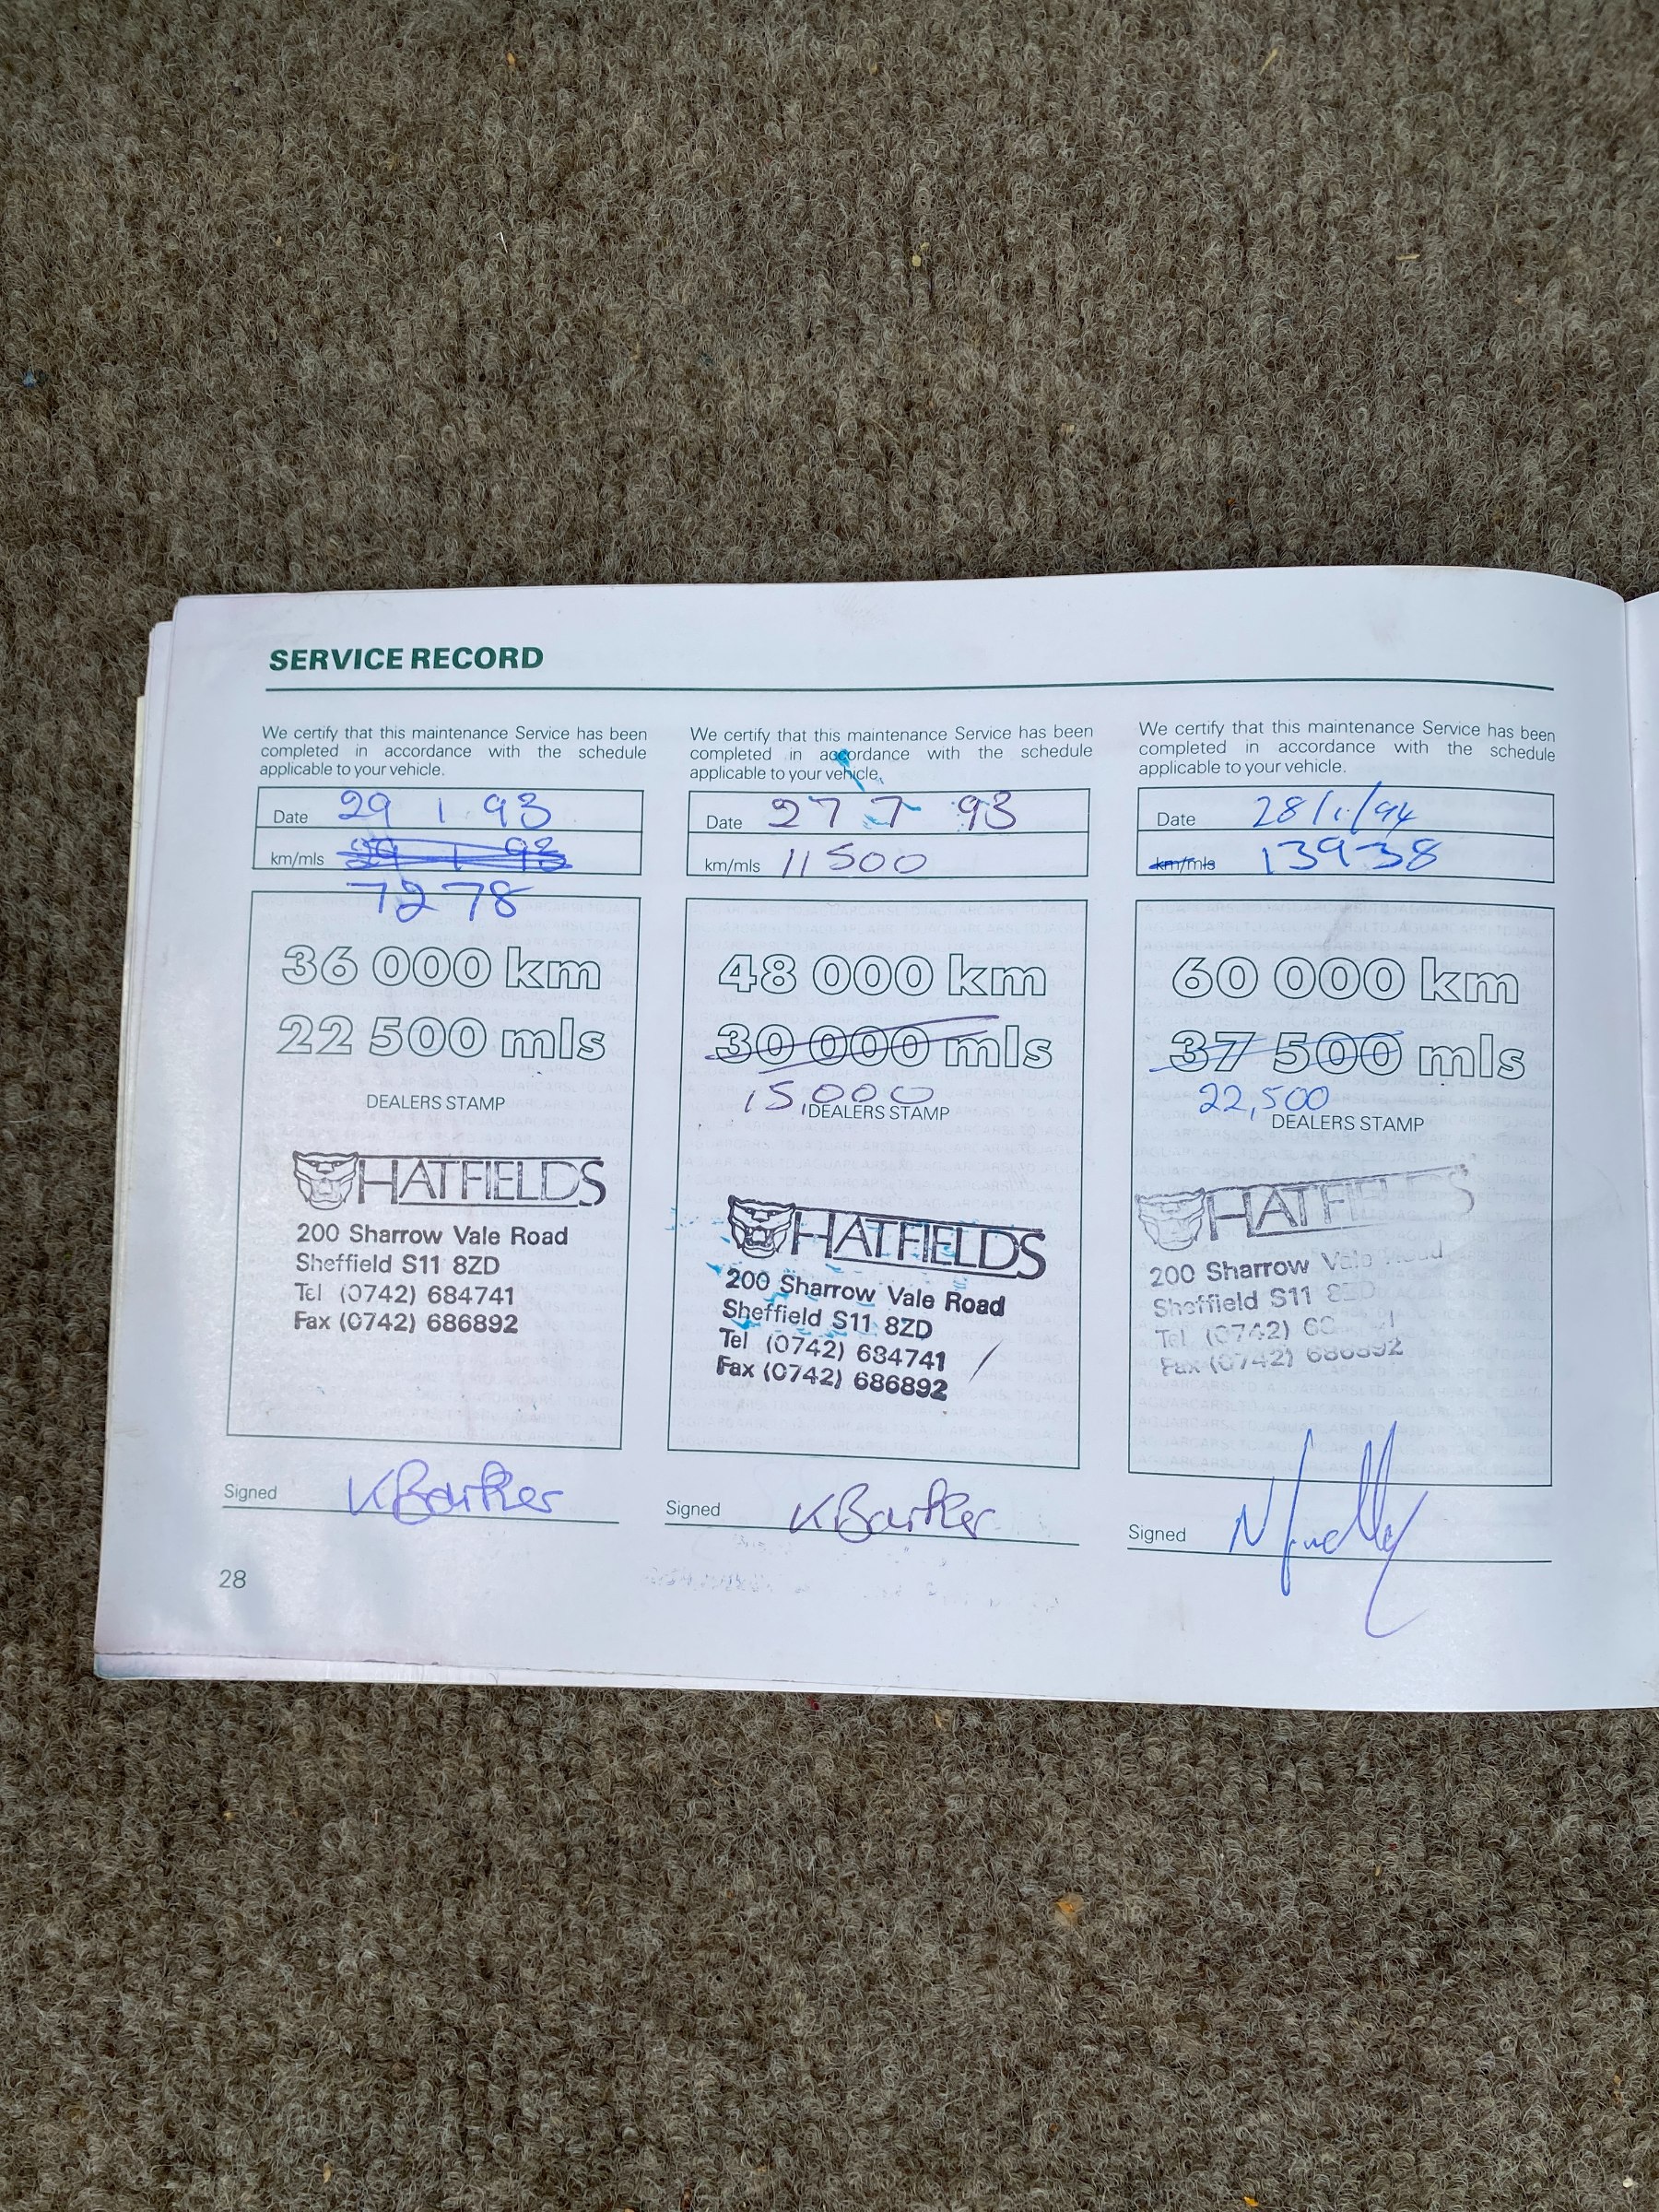 SERVICE RECORD
We certify that this maintenance Service has been
completed in accordance with the schedule
applicable to your vehicle.
Date 29 1 93
km/mls 29 1 93
7278
36 000 km
22 500 mls
DEALERS STAMP
HATFIELDS
200 Sharrow Vale Road
Sheffield S11 8ZD
Tel (0742) 684741
Fax (0742) 686892
Signed K Barker
28
We certify that this maintenance Service has been
completed in accordance with the schedule
applicable to your vehicle.
Date 27 7 93
km/mls 11500
48 000 km
30 000 mls
15,000
DEALERS STAMP
HATFIELDS
200 Sharrow Vale Road
Sheffield S11 8ZD
Tel (0742) 684741
Fax (0742) 686892
Signed K Barker
We certify that this maintenance Service has been
completed in accordance with the schedule
applicable to your vehicle.
Date 28/1/94
km/mls 13938
60 000 km
37 500 mls
22,500
DEALERS STAMP
HATFIELDS
200 Sharrow Vale Road
Sheffield S11 8ZD
Tel (0742)
Fax (0742) 686892
Signed